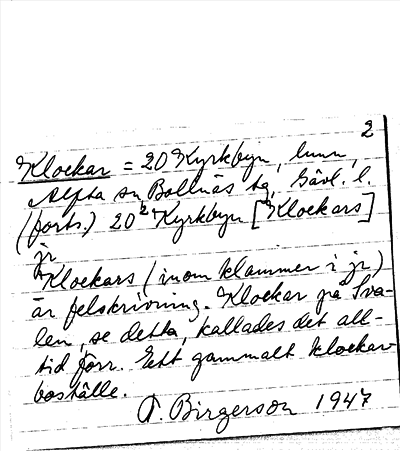 2
Klockar = 20 Kyrkbyn, hmn,
Alfta sn, Bollnäs tg, Gävl. l.
(forts.) 20² Kyrkbyn [Klockars]
jr
Klockars (inom klammer i jr)
är felskrivning. Klockar på Sva-
len, se detta, kallades det all-
tid förr. Ett gammalt klockar-
boställe.
Birgerson 1947